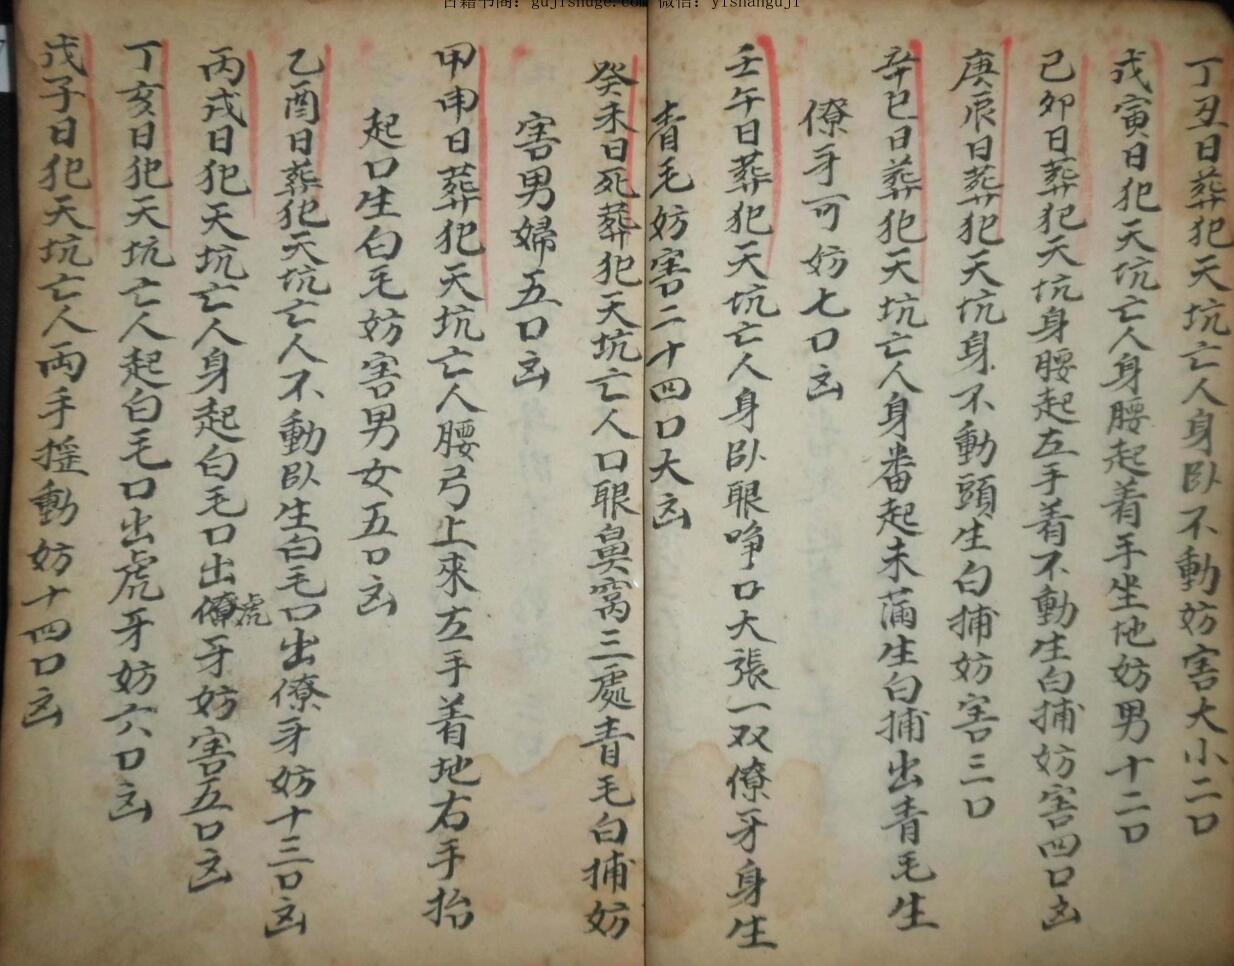 古籍书商：gujishuge.com 微信：yishanguji
丁丑日葬犯天坑亡人身卧不動妨害大小二口
戊寅日犯天坑亡人身腰起着手坐地妨男十二口
己卯日葬犯天坑身腰起左手着不動生白捕妨害四口凶
庚辰日葬犯天坑身不動頭生白捕妨害三口
辛巳日葬犯天坑亡人身番起未蒲生白捕出青毛生
僚牙可妨七口凶
壬午日葬犯天坑亡人身卧眼睁口大張一双僚牙身生
青毛妨害二十四口大凶
癸未日死葬犯天坑亡人口眼鼻窩三處青毛白捕妨
害男婦五口凶
甲申日葬犯天坑亡人腰弓上來左手着地右手抬
起口生白毛妨害男女五口凶
乙酉日葬犯天坑亡人不動卧生白毛口出僚牙妨十三口凶
丙戌日犯天坑亡人身起白毛口出僚虎牙妨害五口凶
丁亥日犯天坑亡人起白毛口出虎牙妨六口凶
戊子日犯天坑亡人両手摇動妨十四口凶